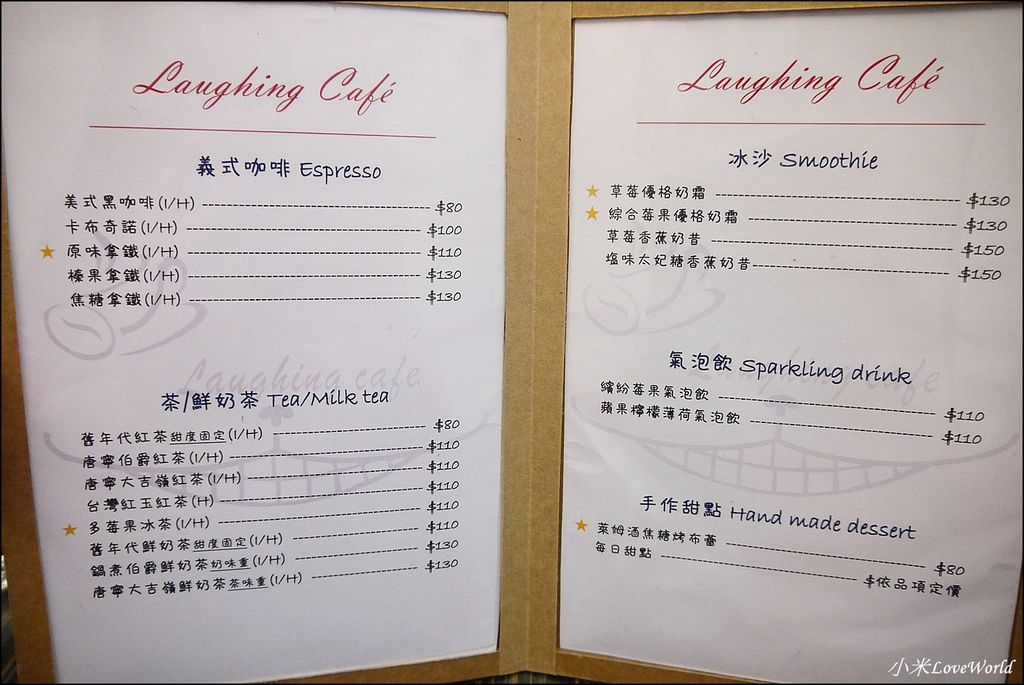 Laughing Café
義式咖啡 Espresso
美式黑咖啡(I/H) $80
卡布奇諾(I/H) $100
★ 原味拿鐵(I/H) $110
榛果拿鐵(I/H) $130
焦糖拿鐵(I/H) $130
Laughing cafe
茶/鮮奶茶 Tea/Milk tea
舊年代紅茶甜度固定(I/H) $80
唐寧伯爵紅茶(I/H) $110
唐寧大吉嶺紅茶(I/H) $110
台灣紅玉紅茶(H) $110
★ 多莓果冰茶(I/H) $110
舊年代鮮奶茶甜度固定(I/H) $110
鍋煮伯爵鮮奶茶奶味重(I/H) $130
唐寧大吉嶺鮮奶茶茶味重(I/H) $130
Laughing Café
冰沙 Smoothie
★ 草莓優格奶霜 $130
★ 綜合莓果優格奶霜 $130
草莓香蕉奶昔 $150
塩味太妃糖香蕉奶昔 $150
氣泡飲 Sparkling drink
繽紛莓果氣泡飲 $110
蘋果檸檬薄荷氣泡飲 $110
手作甜點 Hand made dessert
★ 萊姆酒焦糖烤布蕾 $80
每日甜點 $依品項定價
小米LoveWorld